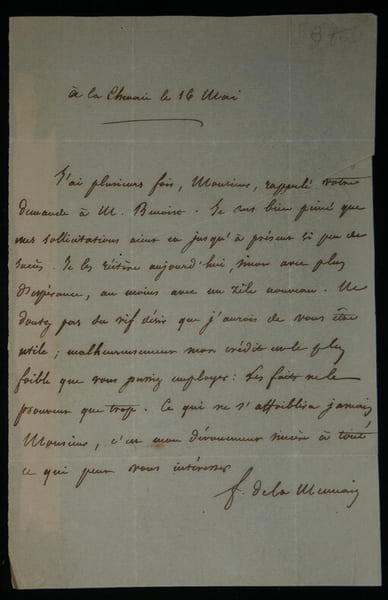 à la Chenaie le 16 Mai
J'ai plusieurs fois, Monsieur, rappelé votre
demande à M. Benoist. Je suis bien peiné que
mes sollicitations aient eu jusqu'à présent si peu de
succès. Je les réitère aujourd'hui, sinon avec plus
d'espérance, au moins avec un zèle nouveau. Ne
doutez pas du vif désir que j'aurois de vous être
utile; malheureusement mon crédit est le plus
foible que vous puissiez employer: les faits ne le
prouvent que trop. Ce qui ne s'affoiblira jamais
Monsieur, c'est mon dévouement sincère à tout
ce qui peut vous intéresser
f. de la Mennais